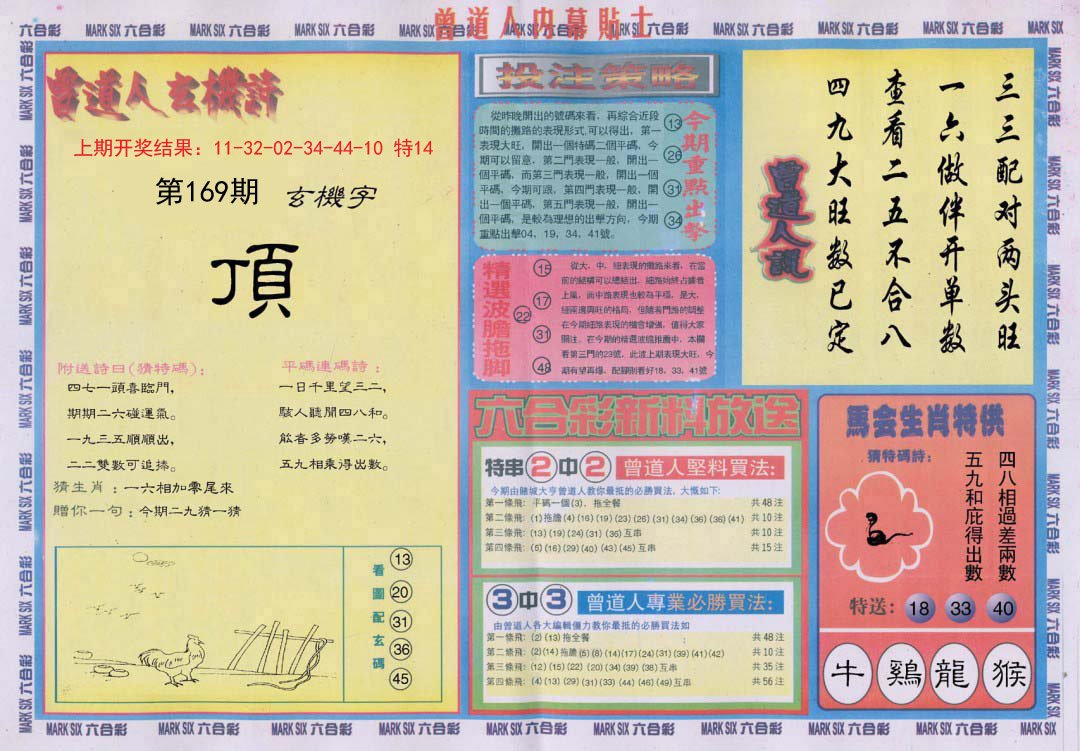 曾道人内幕貼士
六合彩 MARK SIX 六合彩 MARK SIX 六合彩 MARK SIX 六合彩 MARK SIX 六合彩 MARK SIX 六合彩 MARK SIX 六合彩 MARK SIX 六合彩 MARK SIX 六合彩 MARK SIX
曾道人玄機詩
上期开奖结果：11-32-02-34-44-10 特14
第169期 玄機字
頂
附送詩曰(猜特碼)：
四七一頭喜臨門，
期期二六碰運氣。
一九三五順順出，
二二雙數可追捧。
平碼連碼詩：
一日千里望三二，
駭人聽聞四八和。
能者多勞嘆二六，
五九相乘得出數。
猜生肖：一六相加零尾來
贈你一句：今期二九猜一猜
看圖配玄碼
13
20
31
36
45
投注策略
從昨晚開出的號碼來看，再綜合近段
時間的攤路的表現形式，可以得出，第一
表現大旺，開出一個特碼二個平碼，今
期可以留意，第二門表現一般，開出一
個平碼，而第三門表現一般，開出一個
平碼，今期可跟，第四門表現一般，開
出一個平碼，第五門表現一般，開出一
個平碼，是較為理想的出擊方向，今期
重點出擊04、19、34、41號。
今期重點出擊
13
26
31
34
精選波膽拖脚
15
17
22
31
48
從大、中、細表現的攤路來看，在當
前的結構可以總結出，細路始終占據着
上風，而中路表現也較為平穩，是大、
細兩邊興旺的格局，但隨着門路的調整
在今期細路表現的機會增強，值得大家
關注，在今期的精選波膽推薦中，本欄
看第三門的23號，此波上期表現大旺，今
期有望再爆，配腳則看好18、33、41號
曾道人說
三三配对两头旺
一六做伴开单数
查看二五不合八
四九大旺数已定
六合彩新料放送
特串2中2 曾道人堅料買法：
今期由賭城大亨曾道人教你最抵的必勝買法，大慨如下：
第一條飛：平碼一個(3)，拖全餐 共48注
第二條飛：(1)拖膽(4)(16)(19)(23)(26)(31)(34)(36)(36)(41) 共10注
第三條飛：(13)(19)(24)(31)(36)互串 共10注
第四條飛：(5)(16)(29)(40)(43)(45)互串 共15注
3中3 曾道人專業必勝買法：
由曾道人各大編輯僵力教你最抵的必勝買法如
第一條飛：(2)(13)拖全餐 共48注
第二條飛：(2)(14)拖膽(5)(8)(14)(17)(24)(31)(39)(41)(42) 共10注
第三條飛：(12)(15)(22)(20)(34)(39)(38)互串 共35注
第四條飛：(4)(13)(29)(31)(33)(44)(46)(49)互串 共56注
馬会生肖特供
猜特碼詩：
四八相過差兩數
五九和庇得出數
特送：18 33 40
牛 鷄 龍 猴
MARK SIX 六合彩 MARK SIX 六合彩 MARK SIX 六合彩 MARK SIX 六合彩 MARK SIX 六合彩 MARK SIX 六合彩 MARK SIX 六合彩 MARK SIX 六合彩 MARK SIX 六合彩 MARK SIX